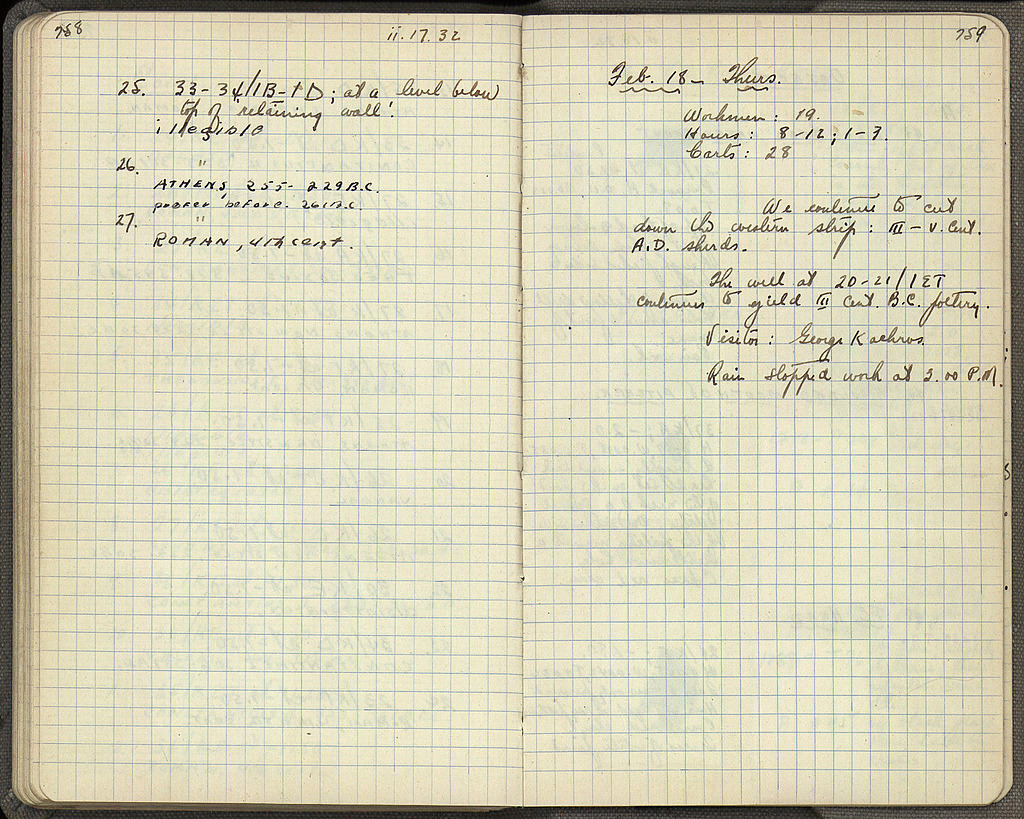 758
ii.17.32
25. 33-34/1B-1D; at a level below
top of "retaining wall".
illegible
26. "
ATHENS, 255-229 B.C.
before 261 B.C.
27. "
ROMAN, 4th cent.
759
Feb. 18 - Thurs.
Workmen: 19.
Hours: 8-12; 1-3.
Carts: 28
We continue to cut
down the western strip: III - V. Cent.
A.D. sherds.
The well at 20-21/1 ET
continues to yield III Cent. B.C. pottery.
Visitor: George
Rain stopped work at 3.00 P.M.